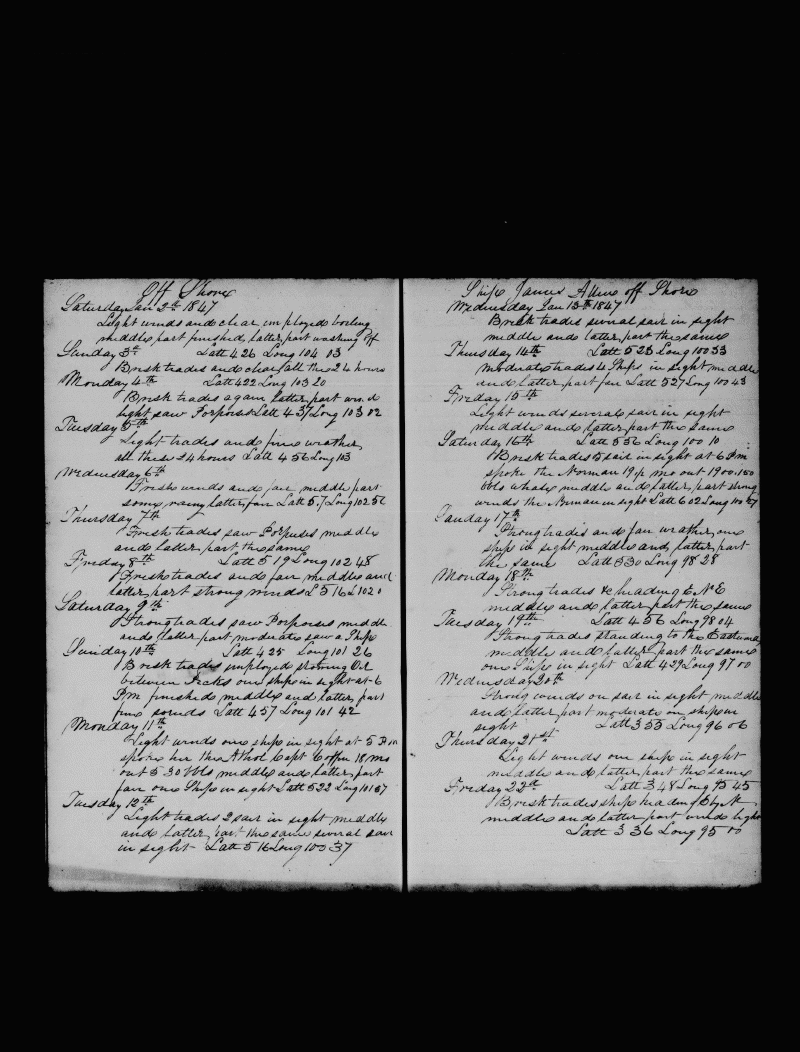 Off Shore
Saturday Jan 2th 1847
Light winds and clear imployed boiling
middle part finished, latter part washing off
Sunday 3th Latt 4 26 Long 104 03
Brisk trades and clear all these 24 hours
Monday 4th Latt 4 22 Long 103 20
Brisk trades again latter part wind
light saw Porposes Latt 4 37 Long 103 02
Tuesday 5th
Light trades and fine weather
all these 24 hours Latt 4 56 Long 103
Wednesday 6th
Fresh winds and fair middle part
some rainy latter fair Latt 5.7 Long 102 56
Thursday 7th
Fresh trades saw Porpuses middle
and latter part the same
Freday 8th Latt 5 19 Long 102 48
Fresh trades and fair middle and
latter part strong winds L 5 16 L 102 0
Saturday 9th
Strong trades saw Porposes middle
and latter part moderate saw a Ship
Sunday 10th Latt 4 25 Long 101 26
Brisk trades imployed stowing Oil
between Decks one ship in sight at 6
P.m finished middle and latter part
fine Latt 4 57 Long 101 42
Monday 11th
Light winds one ship in sight at 5 P.m
spoke her the Athol Capt Coffin 18 mo
out 5 30 bbls middle and latter part
fair one Ship in sight Latt 5 22 Long 101 07
Tuesday 12th
Light trades 2 sair in sight middle
and latter part the same sevral sair
in sight Latt 5 16 Long 100 37
Ship James Allen off Shore
Wednesday Jan 13th 1847
Brisk trades sevral sair in sight
middle and latter part the same
Thursday 14th Latt 5 23 Long 100 33
moderate trades 4 Ships in sight middle
and latter part fair Latt 5 27 Long 100 43
Freday 15th
Light winds severals sair in sight
middle and latter part the same
Saturday 16th Latt 5 56 Long 100 10
Brisk trades 5 sair in sight at 6 P.m
spoke the Norman 19 1/2 mo out 1900. 150
bbls whale middle and latter part strong
winds the Norman in sight Latt 6 02 Long 100 07
Sunday 17th
Strong trades and fair weather, one
ship in sight middle and latter part
the same Latt 5 30 Long 98 28
Monday 18th
Strong trades & heading E N E
middle and latter part the same
Tuesday 19th Latt 4 56 Long 98 04
Strong trades standing to the Eastward
middle and latter part the same
one Ship in sight Latt 4 29 Long 97 00
Wednesday 20th
Strong winds on sair in sight middle
and latter part moderate on ship in
sight Latt 3 55 Long 96 06
Thursday 21st
Light winds on ship in sight
middle and latter part the same
Freday 22th Latt 3 48 Long 95 45
Brisk trades ship heading E by N
middle and latter part winds light
Latt 3 36 Long 95 00